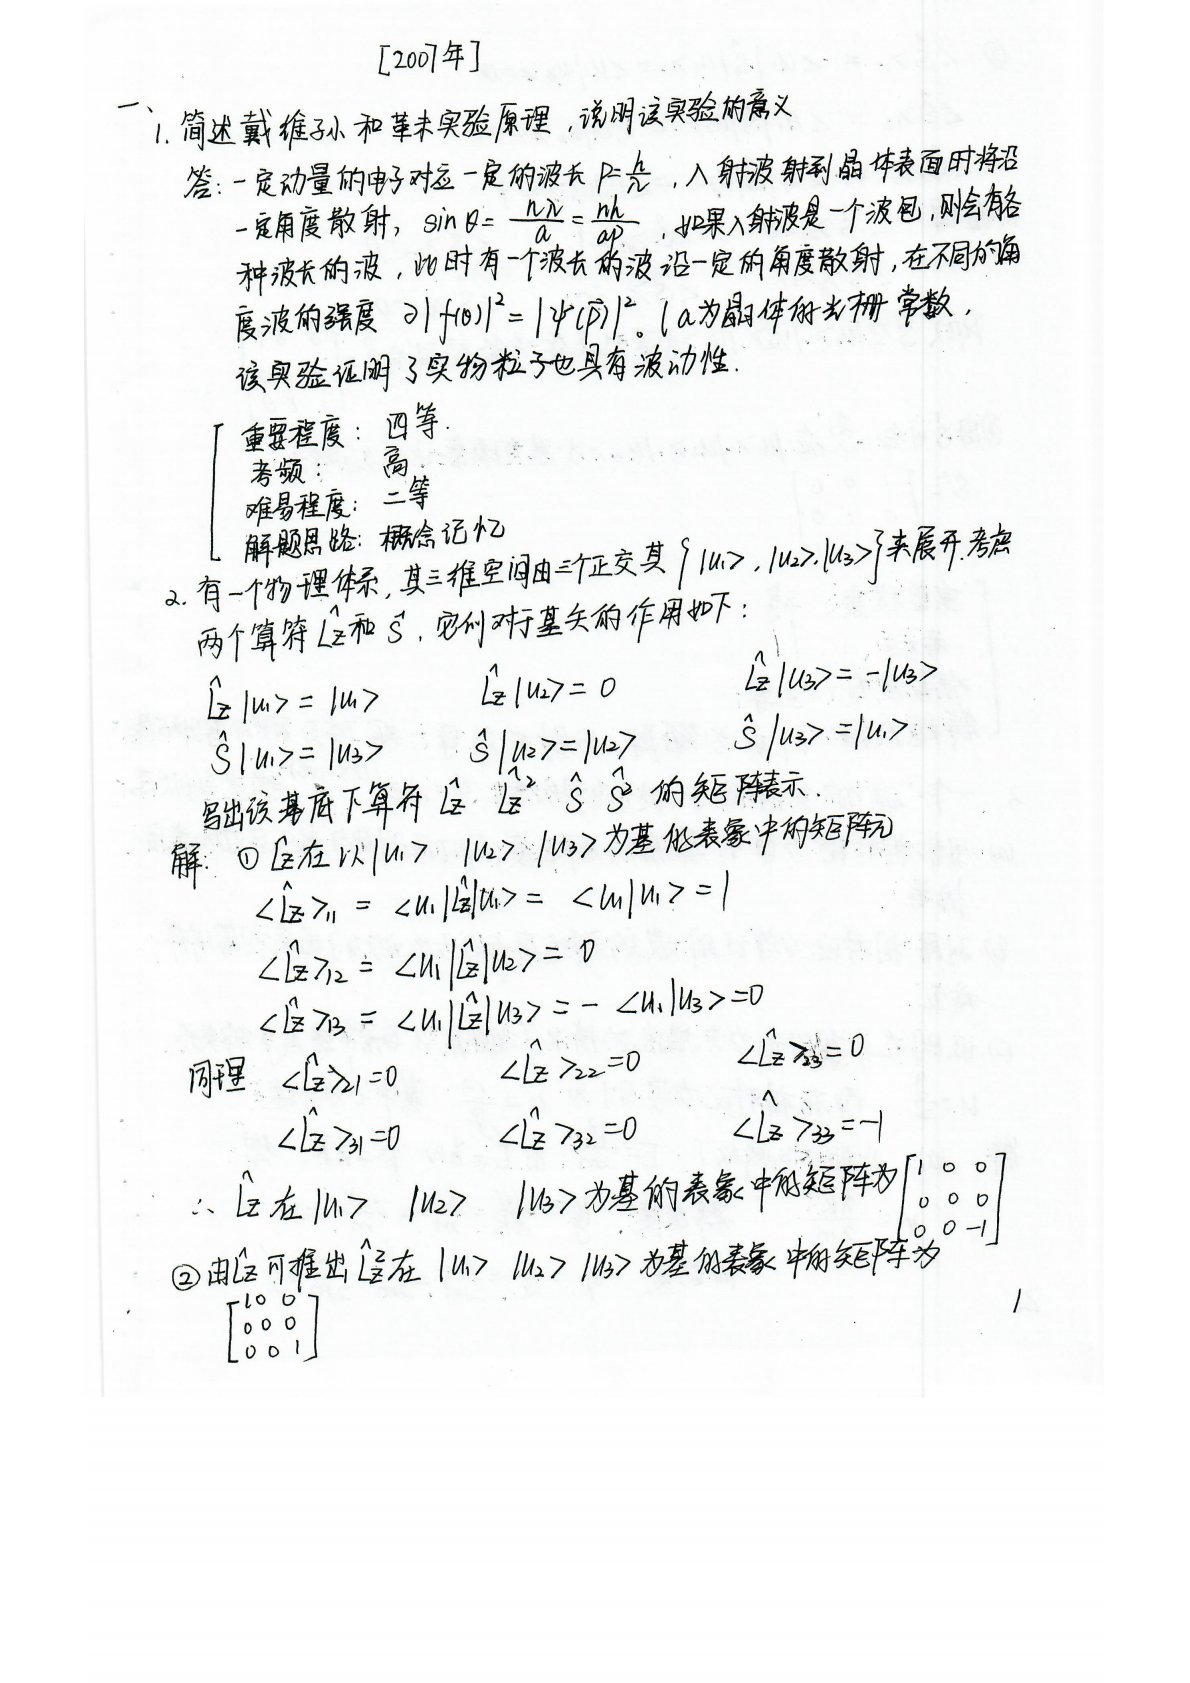 [2007年]
一、
1. 简述戴维孙和革末实验原理,说明该实验的意义
答:一定动量的电子对应一定的波长 P=h/λ,入射波射到晶体表面时将沿
一定角度散射, sinθ= nλ/a = nh/ap ,如果入射波是一个波包,则会有各
种波长的波,此时有一个波长的波沿一定的角度散射,在不同的角
度波的强度 ∂|f(θ)|² = |ψ(p⃗)|²。(a为晶体的光栅常数,
该实验证明了实物粒子也具有波动性.
重要程度: 四等.
考频: 高.
难易程度: 二等
解题思路: 概念记忆
2. 有一个物理体系,其三维空间由三个正交其{|u₁>,|u₂>,|u₃>}来展开.考虑
两个算符L̂z和Ŝ,它们对于基矢的作用如下:
L̂z|u₁>=|u₁> L̂z|u₂>=0 L̂z|u₃>=-|u₃>
Ŝ|u₁>=|u₃> Ŝ|u₂>=|u₂> Ŝ|u₃>=|u₁>
写出该基底下算符 L̂z L̂z² Ŝ Ŝ² 的矩阵表示.
解: ① L̂z在以|u₁> |u₂> |u₃>为基的表象中的矩阵元
<L̂z>₁₁ = <u₁|L̂z|u₁> = <u₁|u₁> = 1
<L̂z>₁₂ = <u₁|L̂z|u₂> = 0
<L̂z>₁₃ = <u₁|L̂z|u₃> = - <u₁|u₃> = 0
同理 <L̂z>₂₁=0 <L̂z>₂₂=0 <L̂z>₂₃=0
<L̂z>₃₁=0 <L̂z>₃₂=0 <L̂z>₃₃=-1
∴ L̂z在|u₁> |u₂> |u₃>为基的表象中的矩阵为 [1 0 0
0 0 0
0 0 -1]
②由L̂z可推出L̂z²在 |u₁> |u₂> |u₃>为基的表象中的矩阵为
[1 0 0
0 0 0
0 0 1]
1